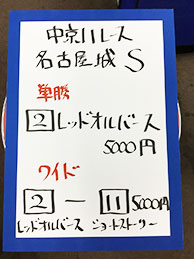 中京11レース
名古屋城S
単勝
2 レッドオルバース
5000円
ワイド
2 ー 11 5000円
レッドオルバース ショートストーリー